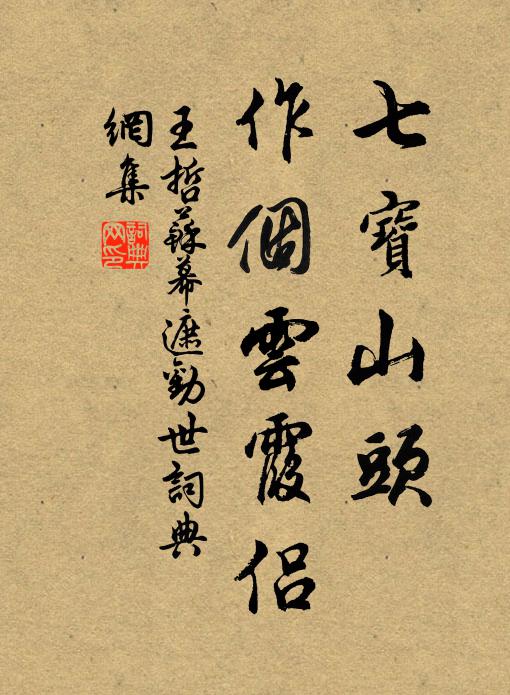 七寶山頭
作個雲霞侶
王哲蘇幕遮勸世詞典
網集
詞典網印